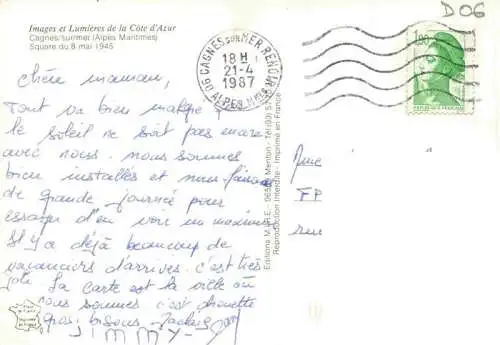 Images et Lumières de la Côte d'Azur
Cagnes/sur/mer (Alpes Maritimes)
Square du 8 mai 1945
D 06
06 CAGNES SUR MER RENOIR
18 H
21-4
1987
ALPES MMES
REPUBLIQUE FRANÇAISE
Chère maman,
Tout va bien malgré
le soleil ne soit pas encore
avec nous. nous sommes
bien installés et nous faisons
de grande journée pour
essayer d'en voir un maximum
Il y a déjà beaucoup de
vacanciers d'arrivés. c'est très
joli. La carte est la ville où
nous sommes c'est chouette
gros bisous
JIMMY
Mme
FP
rue
Editions M.A.R.E. - 06500 Menton - Tél (93)
Reproduction Interdite - Imprimé en France